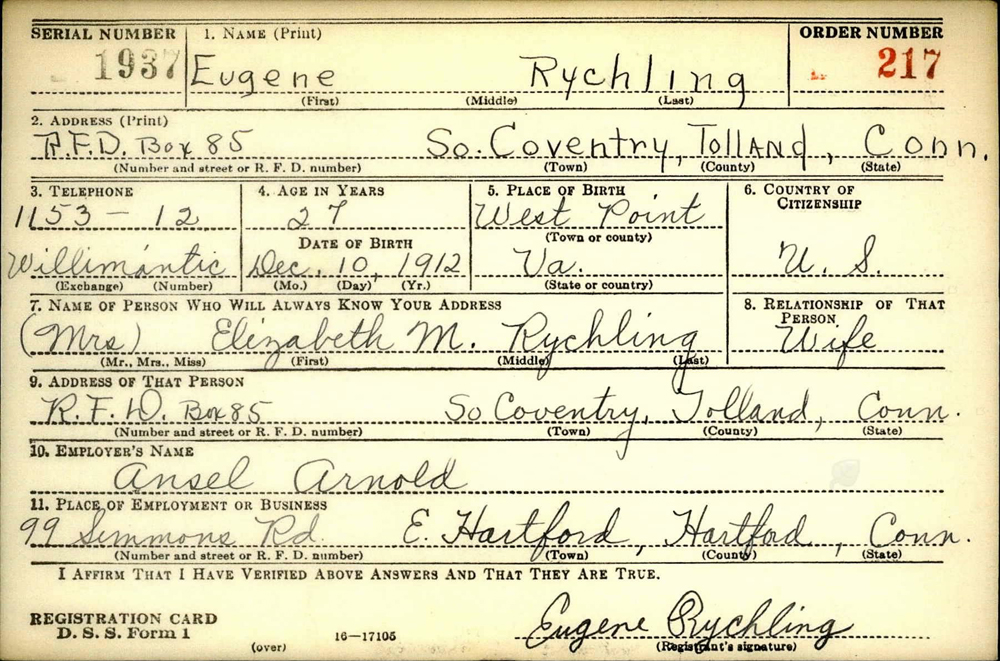 SERIAL NUMBER 1. NAME (Print) ORDER NUMBER
1937 Eugene Rychling 217
(First) (Middle) (Last)
2. ADDRESS (Print)
R.F.D. Box 85 So. Coventry, Tolland, Conn.
(Number and street or R. F. D. number) (Town) (County) (State)
3. TELEPHONE 4. AGE IN YEARS 5. PLACE OF BIRTH 6. COUNTRY OF CITIZENSHIP
1153 - 12 27 West Point
DATE OF BIRTH (Town or county)
Willimantic Dec. 10, 1912 Va. U. S.
(Exchange) (Number) (Mo.) (Day) (Yr.) (State or country)
7. NAME OF PERSON WHO WILL ALWAYS KNOW YOUR ADDRESS 8. RELATIONSHIP OF THAT PERSON
(Mrs) Elizabeth M. Rychling Wife
(Mr., Mrs., Miss) (First) (Middle) (Last)
9. ADDRESS OF THAT PERSON
R.F.D. Box 85 So Coventry, Tolland, Conn.
(Number and street or R. F. D. number) (Town) (County) (State)
10. EMPLOYER'S NAME
Ansel Arnold
11. PLACE OF EMPLOYMENT OR BUSINESS
99 Simmons Rd. E. Hartford, Hartford, Conn.
(Number and street or R. F. D. number) (Town) (County) (State)
I AFFIRM THAT I HAVE VERIFIED ABOVE ANSWERS AND THAT THEY ARE TRUE.
REGISTRATION CARD
D. S. S. Form 1 16—17105 Eugene Rychling
(over) (Registrant's signature)